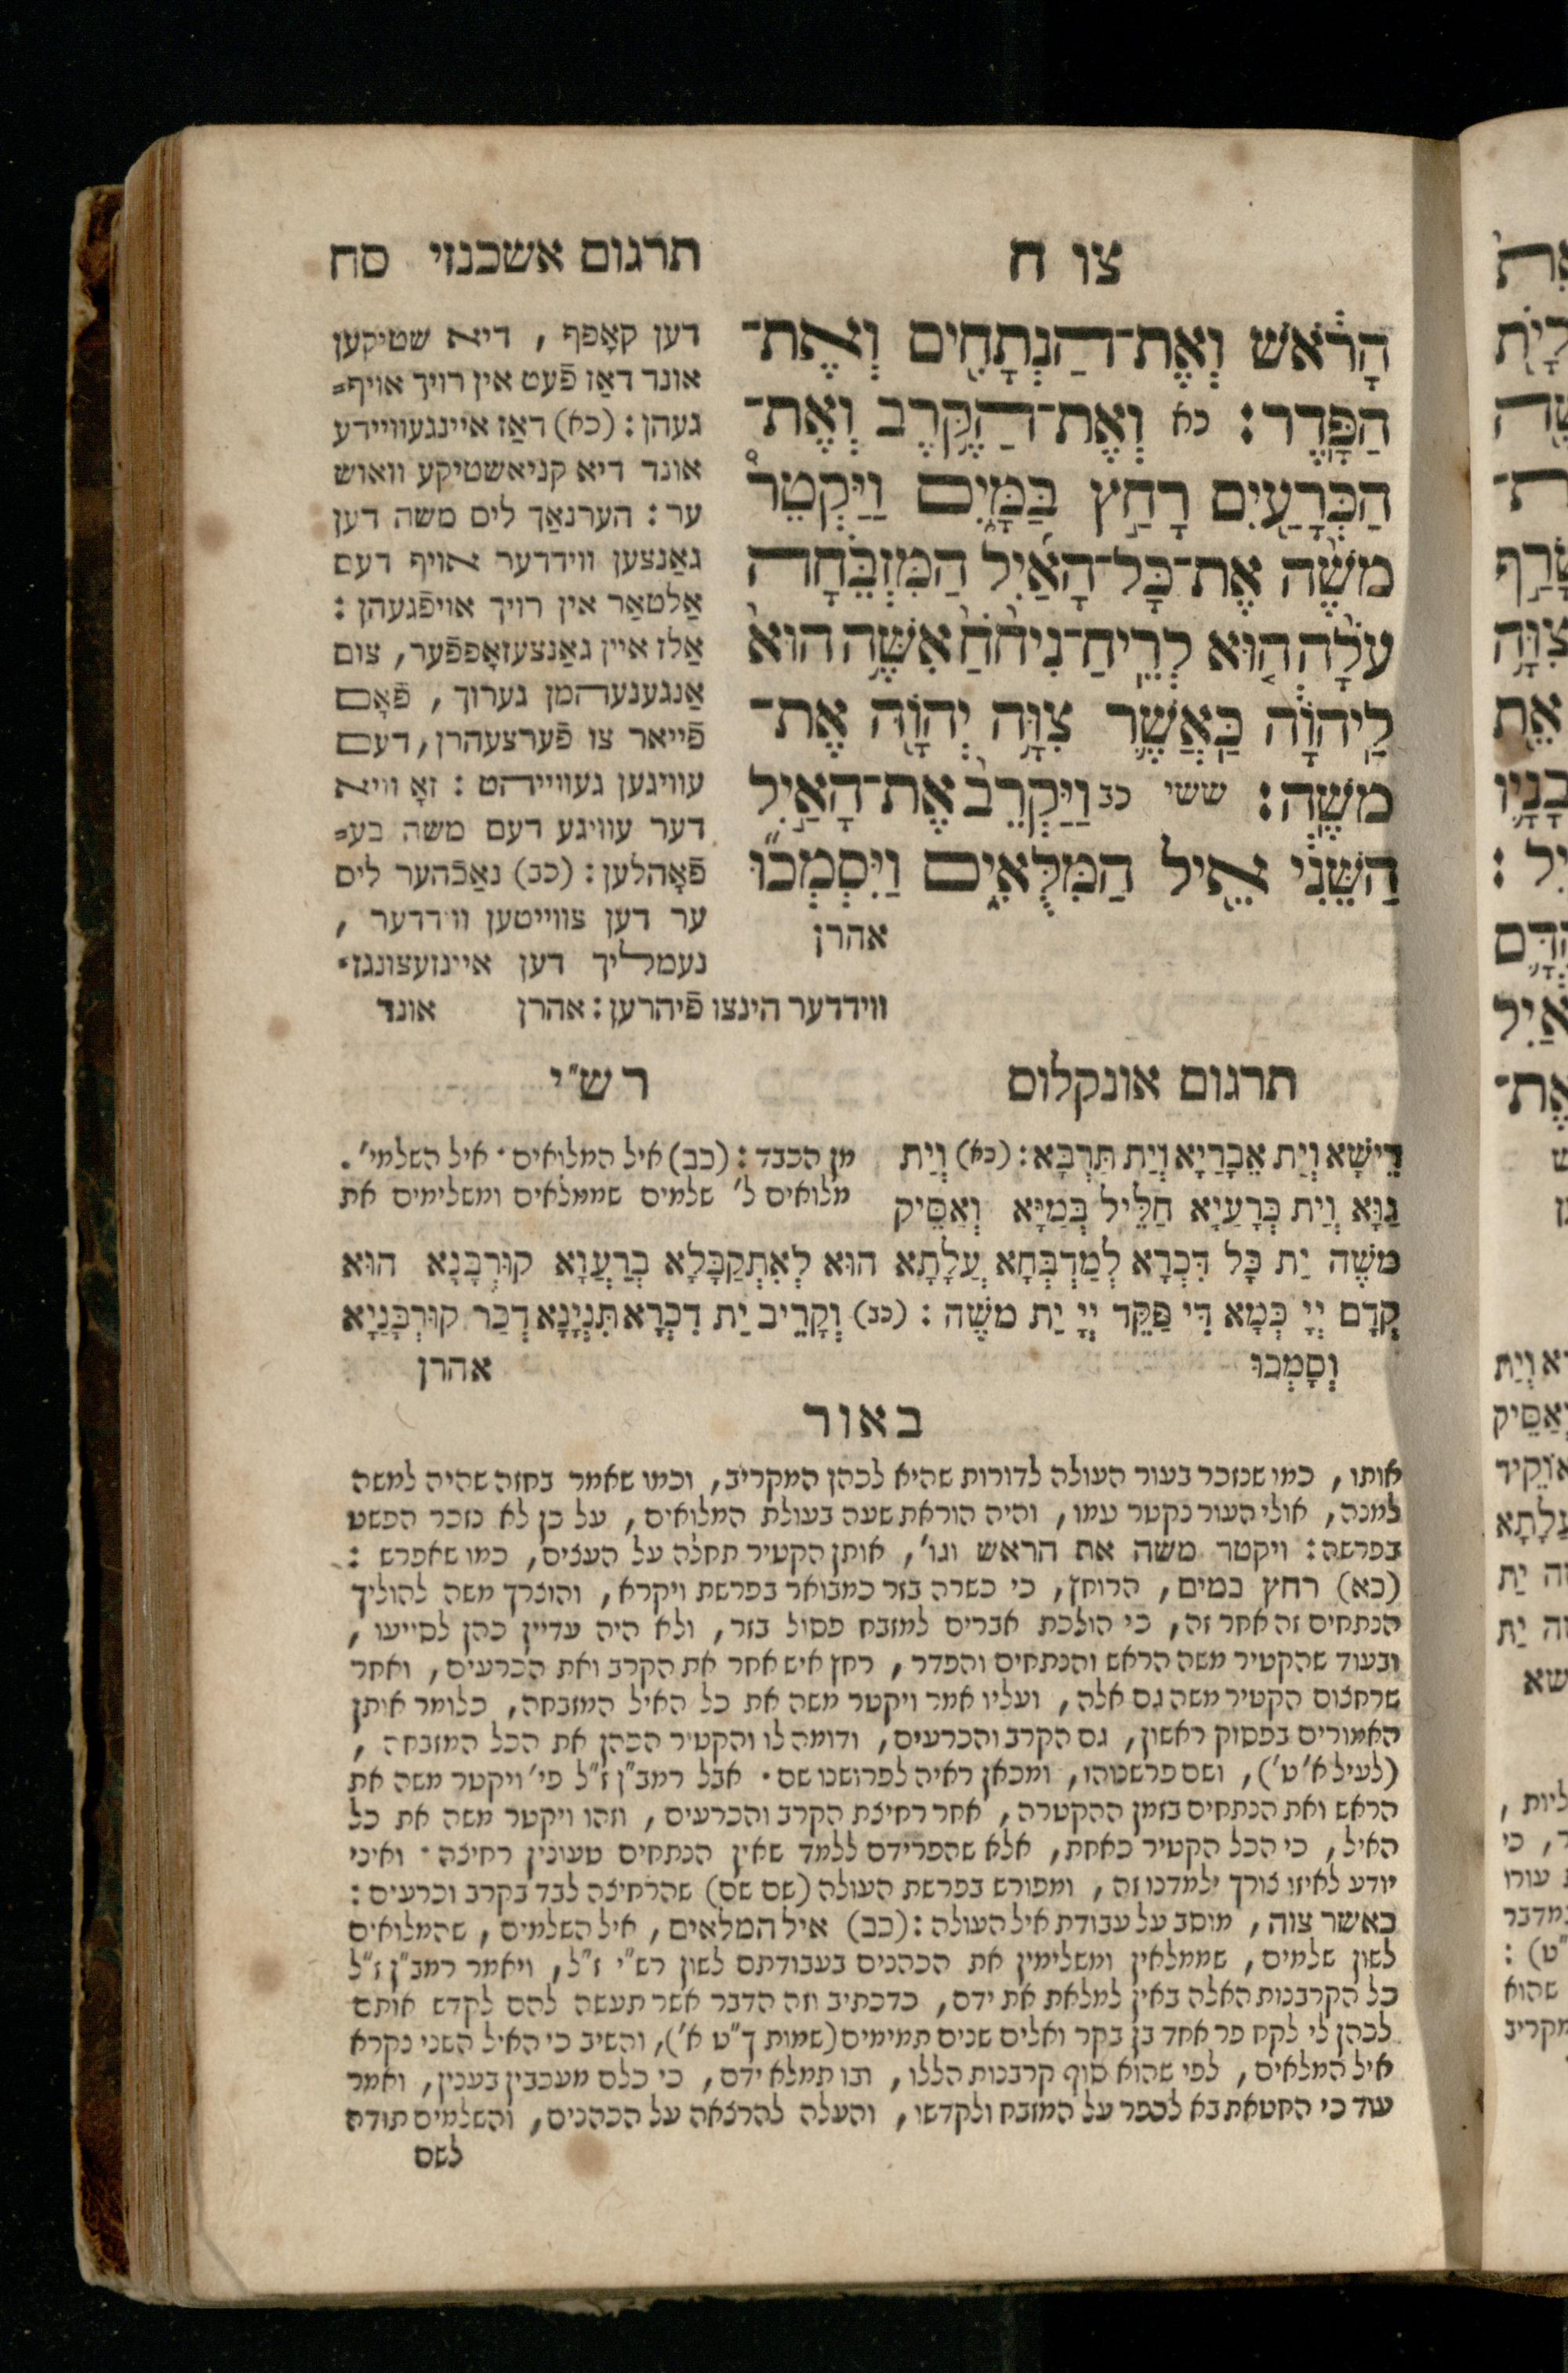 צו ח
תרגום אשכנזי סח
הָרֹ֔אשׁ וְאֶת־הַנְּתָחִ֖ים וְאֶת־
הַפָּֽדֶר׃ כא וְאֶת־הַקֶּ֥רֶב וְאֶת־
הַכְּרָעַ֖יִם רָחַ֣ץ בַּמָּ֑יִם וַיַּקְטֵר֩
משֶׁ֨ה אֶת־כָּל־הָאַ֜יִל הַמִּזְבֵּ֗חָה
עֹלָ֨ה ה֤וּא לְרֵֽיחַ־נִיחֹ֨חַ֙ אִשֶּׁ֥ה הוּא֙
לַֽיהוָֹ֔ה כַּֽאֲשֶׁ֛ר צִוָּ֥ה יְהוָֹ֖ה אֶת־
משֶֽׁה׃ ששי כב וַיַּקְרֵב֙ אֶת־הָאַ֣יִל
הַשֵּׁנִ֔י אֵ֖יל הַמִּלֻּאִ֑ים וַֽיִּסְמְכ֞וּ
אהרן
דען קאָפף, דיא שטיקען
אונד דאַז פֿעט אין רויך אויף=
געהן: (כא) דאַז איינגעוויידע
אונד דיא קניאשטיקע וואוש
ער: הערנאַך ליס משה דען
גאַנצען ווידדער אויף דעם
אַלטאַר אין רויך אויפֿגעהן:
אַלז איין גאַנצעזאָפפֿער, צום
אַנגענעהמן גערוך, פֿאָם
פֿייאר צו פֿערצעהרן, דעם
עוויגען געווייהט: זאָ וויא
דער עוויגע דעם משה בע=
פֿאָהלען: (כב) נאַכֿהער ליס
ער דען צווייטען ווידדער,
נעמליך דען איינזעצונגז־
ווידדער הינצו פֿיהרען: אהרן אונד
תרגום אונקלוס
דֵּישָׁא וְיַת אֵבָרַיָא וְיַת תַּרְבָּא: (כא) וְיַת
גַוָּא וְיַת כְּרָעַיָא חַלֵּיל בְּמַיָּא וְאַסֵּיק
משֶׁה יַת כָּל דִּכְרָא לְמַדְבְּחָא עֲלָתָא הוּא לְאִתְקַבָּלָא בְרַעֲוָא קוּרְבָּנָא הוּא
קֳדָם יְיָ כְּמָא דִּי פַּקֵּד יְיָ יַת משֶׁה: (כב) וְקָרֵיב יַת דִּכְרָא תִּנְיָנָא דְּכַר קוּרְבָּנַיָא
וְסָמְכוּ
רש"י
מן הכבד: (כב) איל המלואים· איל השלמי'.
מלואים ל' שלמים שממלאים ומשלימים את
אהרן
באור
אותו, כמו שנזכר בעור העולה לדורות שהיא לכהן המקריב, וכמו שאמר בחזה שהיה למשה
למנה, אולי העור נקטר עמו, והיה הוראת שעה בעולת המלואים, על כן לא נזכר הפשט
בפרשה: ויקטר משה את הראש וגו', אותן הקטיר תחלה על העצים, כמו שאפרש:
(כא) רחץ במים, הרוחץ, כי כשרה בזר כמבואר בפרשת ויקרא, והוצרך משה להוליך
הנתחים זה אחר זה, כי הולכת אברים למזבח פסול בזר, ולא היה עדיין כהן לסייעו,
ובעוד שהקטיר משה הראש והנתחים והפדר, רחץ איש אחר את הקרב ואת הכרעים, ואחר
שרחצום הקטיר משה גם אלה, ועליו אמר ויקטר משה את כל האיל המזבחה, כלומר אותן
האמורים בפסוק ראשון, גם הקרב והכרעים, ודומה לו והקטיר הכהן את הכל המזבחה,
(לעיל א' ט'), ושם פרשנוהו, ומכאן ראיה לפרושנו שם· אבל רמב"ן ז"ל פי' ויקטר משה את
הראש ואת הנתחים בזמן ההקטרה, אחר רחיצת הקרב והכרעים, וזהו ויקטר משה את כל
האיל, כי הכל הקטיר כאחת, אלא שהפרידם ללמד שאין הנתחים טעונין רחיצה· ואיני
יודע לאיזו צורך ילמדנו זה, ומפורש בפרשת העולה (שם שם) שהרחיצה לבד בקרב וכרעים:
כאשר צוה, מוסב על עבודת איל העולה: (כב) איל המלאים, איל השלמים, שהמלואים
לשון שלמים, שממלאין ומשלימין את הכהנים בעבודתם לשון רש"י ז"ל, ויאמר רמב"ן ז"ל
כל הקרבנות האלה באין למלאת את ידם, כדכתיב וזה הדבר אשר תעשה להם לקדש אותם
לכהן לי לקח פר אחד בן בקר ואלים שנים תמימים (שמות ך"ט א'), והשיב כי האיל השני נקרא
איל המלאים, לפי שהוא סוף קרבנות הללו, ובו תמלא ידם, כי כלם מעכבין בענין, ואמר
עוד כי החטאת בא לכפר על המזבח ולקדשו, והעלה להרצאה על הכהנים, והשלמים תודה
לשם